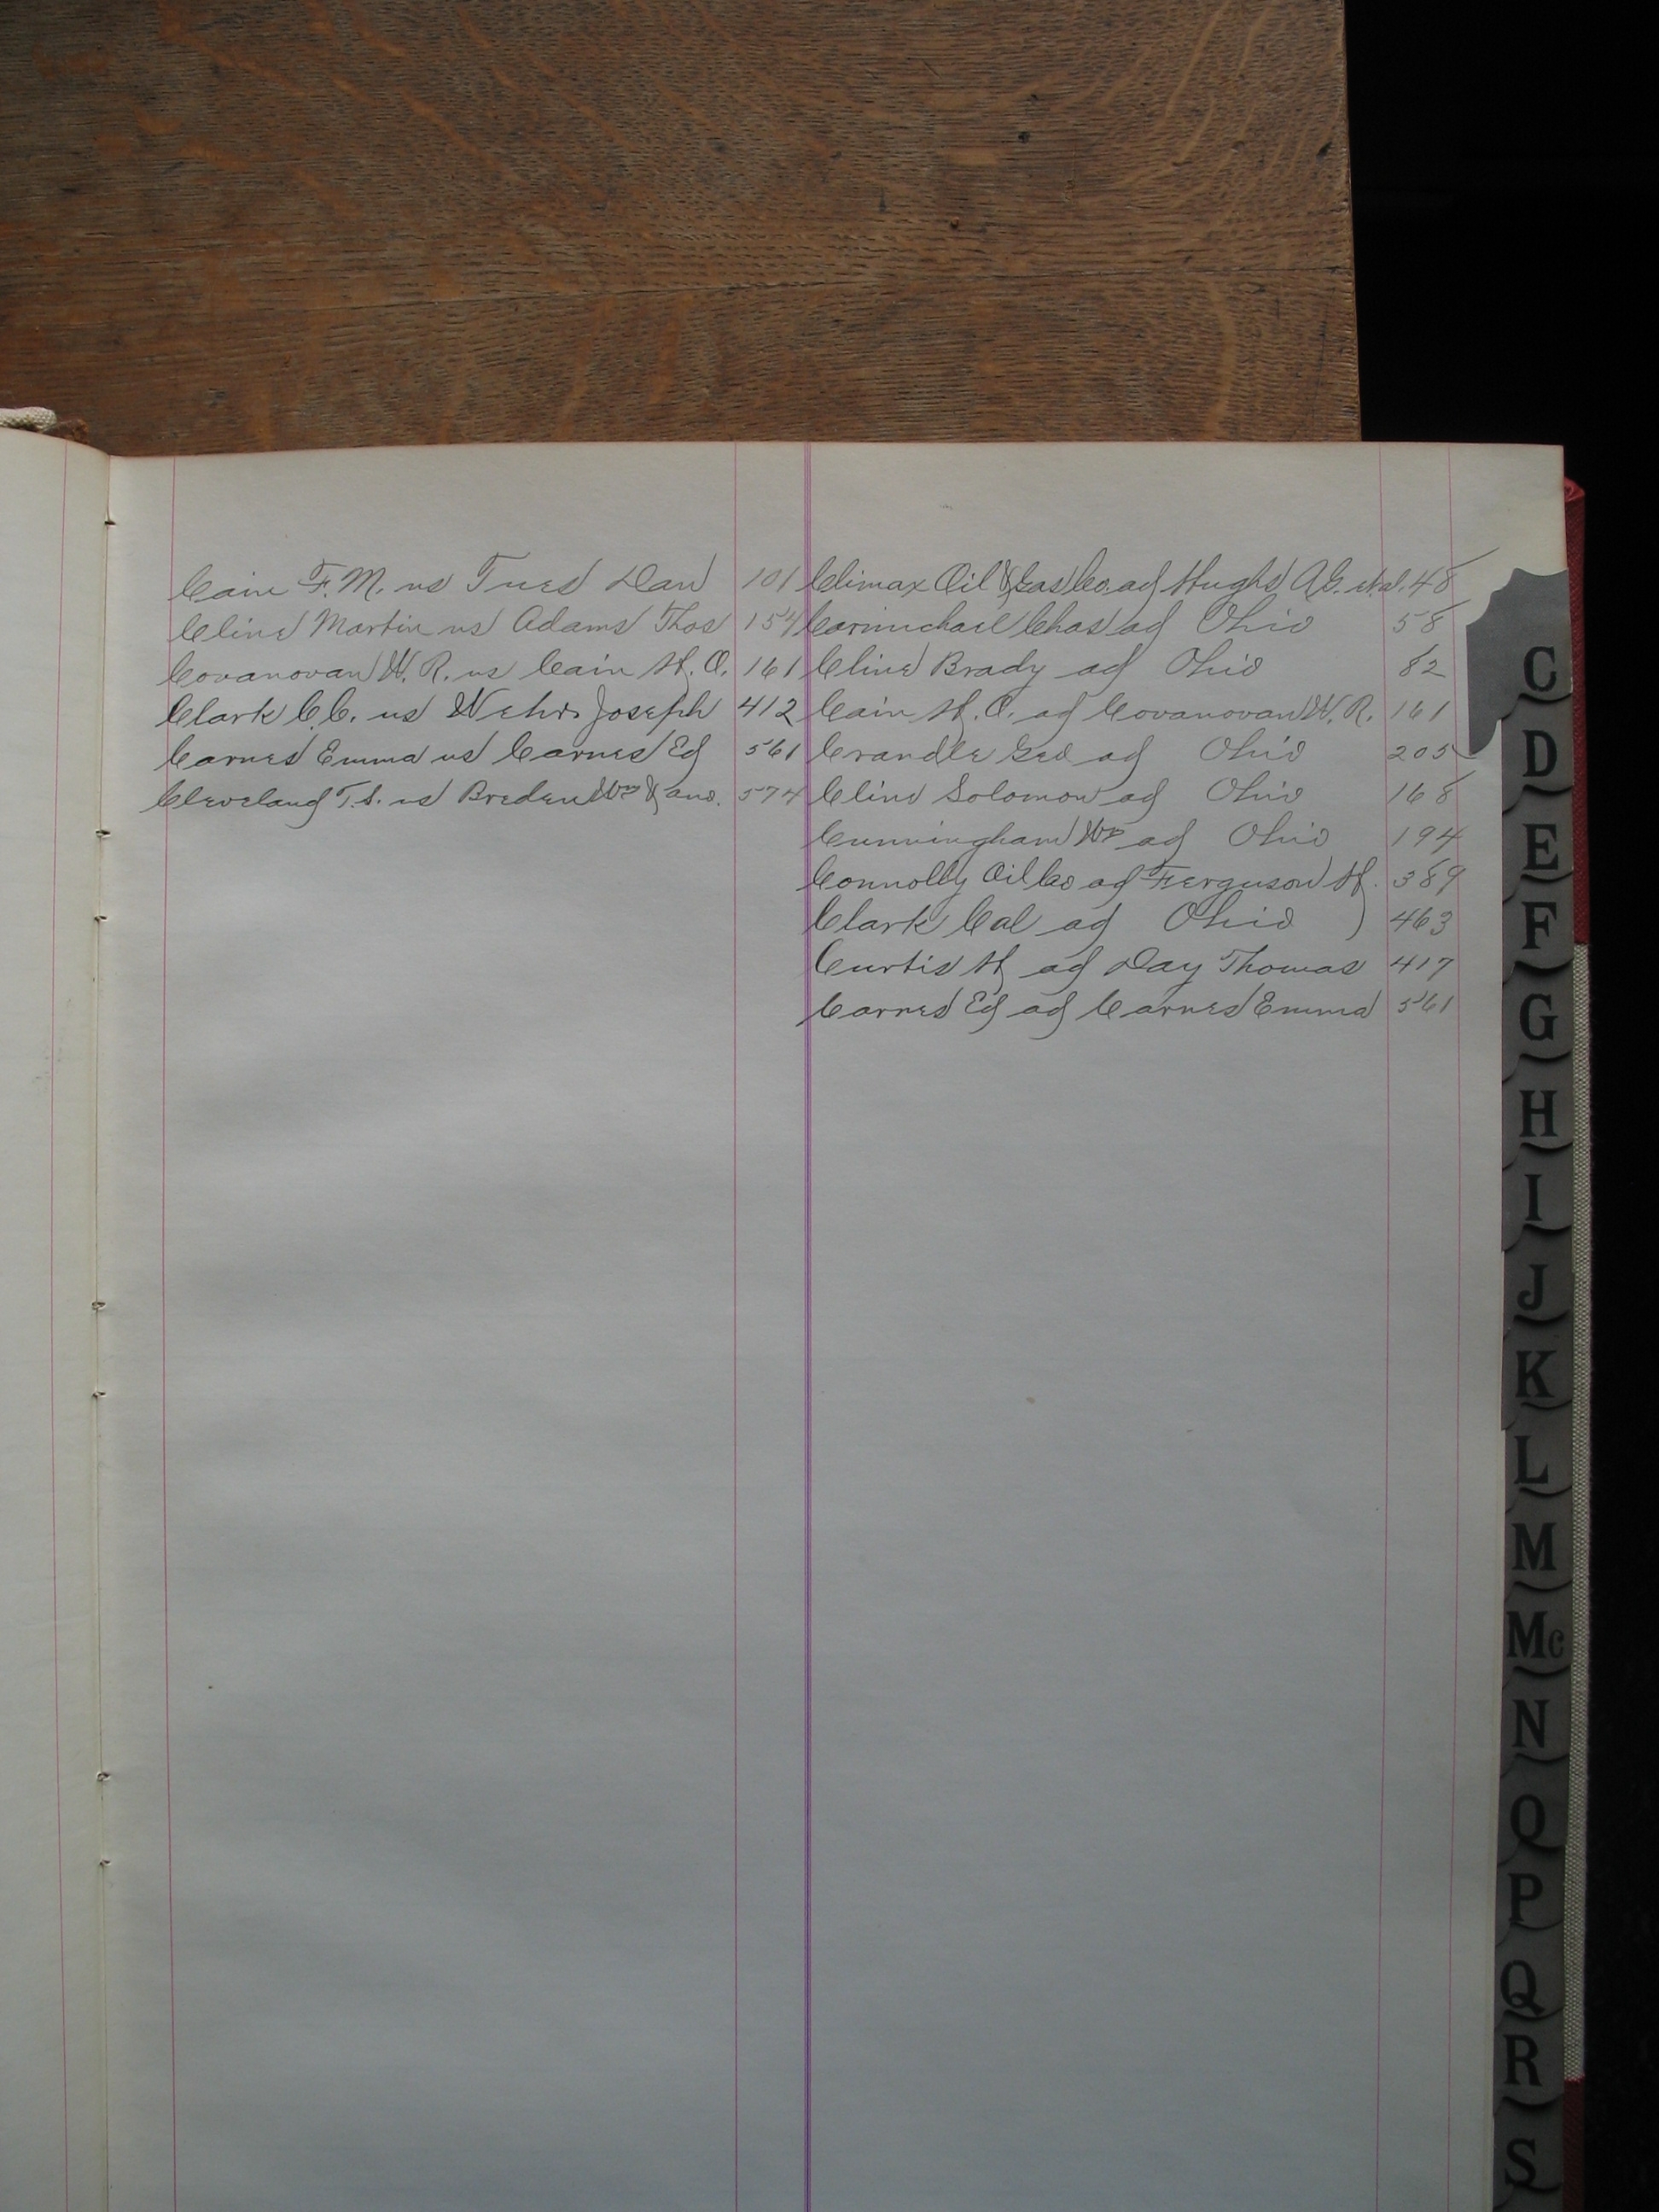 Cain F. M. vs Tues Dan 101
Cline Martin vs Adams Thos 154
Covanovan W. R. vs Cain H. O. 161
Clark C. C. vs Wehr Joseph 412
Carnes Emma vs Carnes Ed 561
Cleveland T. S. vs Breden Wm & ano. 574
Climax Oil & Gas Co. ad Hughs A. et al. 48
Carmichael Chas ad Ohio 58
Cline Brady ad Ohio 82
Cain H. O. ad Covanovan W. R. 161
Crandle Geo ad Ohio 205
Cline Solomon ad Ohio 168
Cunningham Wm ad Ohio 194
Connolly Oil Co ad Ferguson H. 389
Clark Cal ad Ohio 463
Curtis H ad Day Thomas 417
Carnes Ed ad Carnes Emma 561
C
D
E
F
G
H
I
J
K
L
M
Mc
N
O
P
Q
R
S